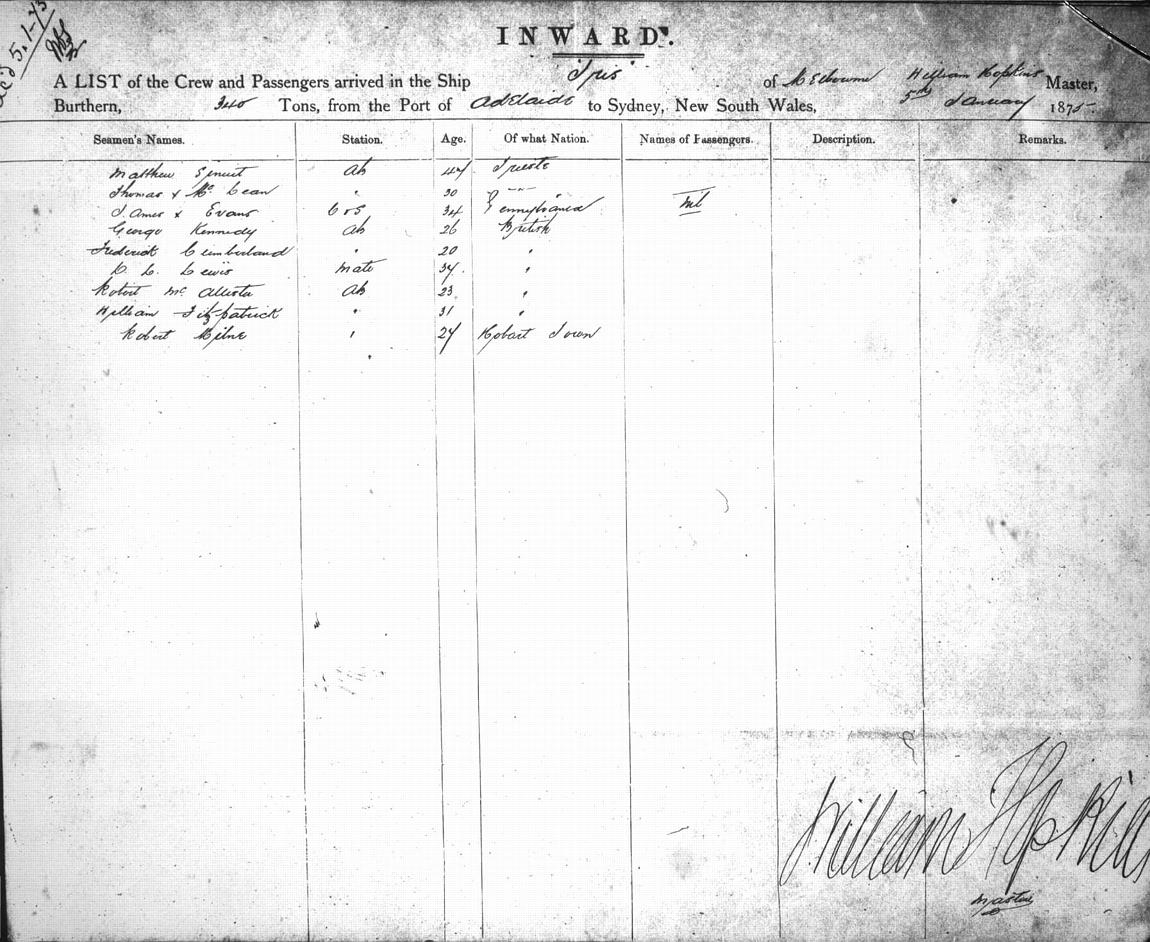 INWARD.
A LIST of the Crew and Passengers arrived in the Ship Iris of Melbourne William Hopkins Master,
Burthern, 340 Tons, from the Port of Adelaide to Sydney, New South Wales, 5th January 1875
Seamen's Names. Station. Age. Of what Nation. Names of Passengers. Description. Remarks.
Matthew ab 44 Trieste
Thomas x McLean " 30 "
James x Evans 34 Pennsylvania Nil
George Kennedy ab 26 British
Frederick Cumberland " 20 "
Lewis Mate 34 "
Robert McAllister ab 23 "
William Fitzpatrick " 31 "
Robert Milne " 24 Hobart Town
William Hopkins
Master